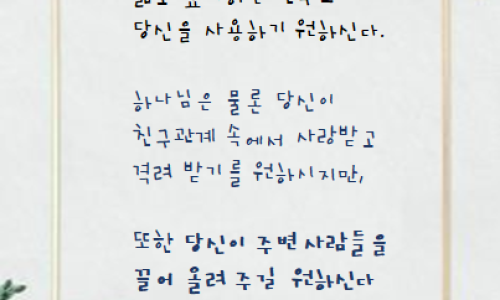 당신을 사용하기 원하신다.
하나님은 물론 당신이
친구관계 속에서 사랑받고
격려 받기를 원하시지만,
또한 당신이 주변 사람들을
끌어 올려 주길 원하신다